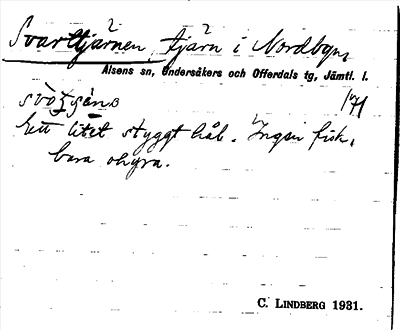 Svarttjärnen, tjärn i Nordbyn,
Alsens sn, Undersåkers och Offerdals tg, Jämtl. l.
171
Ett litet styggt hål. Ingen fisk,
bara ohyra.
C. LINDBERG 1931.